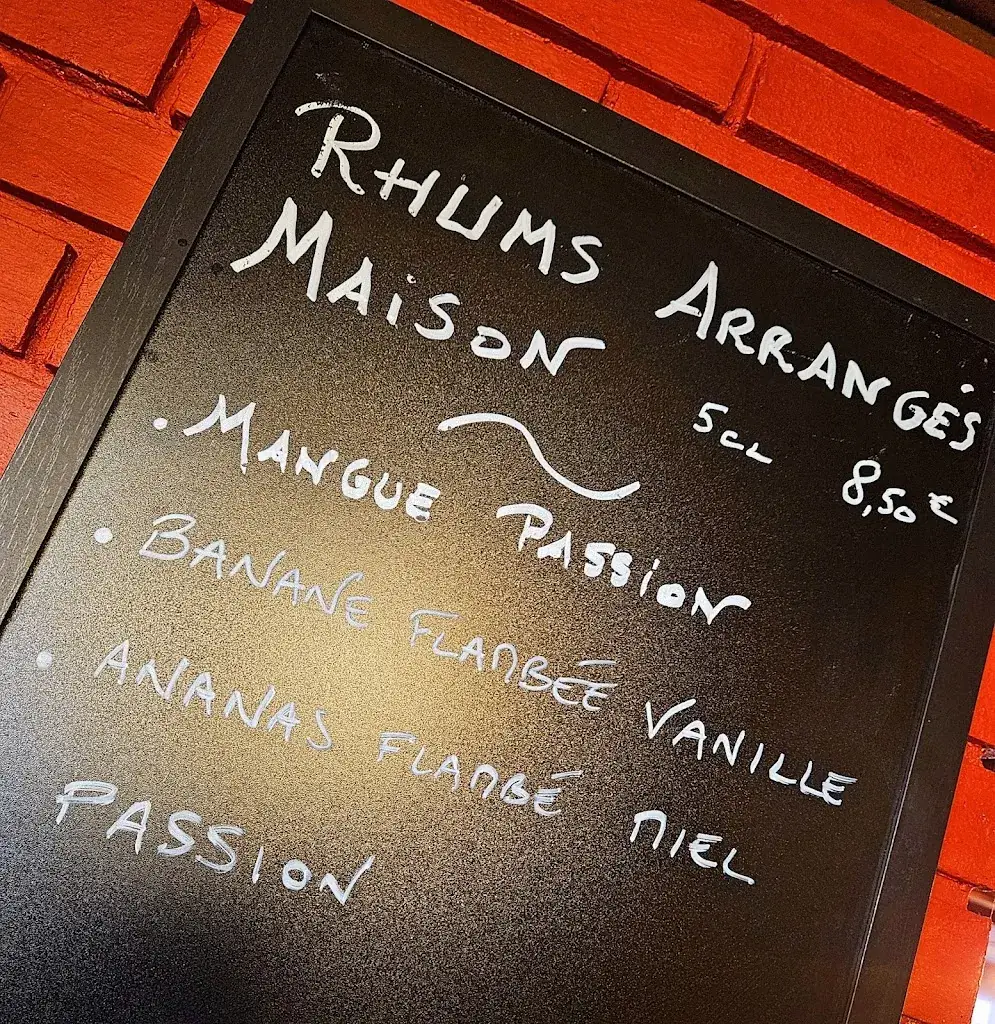 RHUMS ARRANGÉS
MAiSON
5 CL 8,50 €
• MANGUE PASSiON
• BANANE FLAMBÉE VANILLE
• ANANAS FLAMBÉ MIEL
PASSION